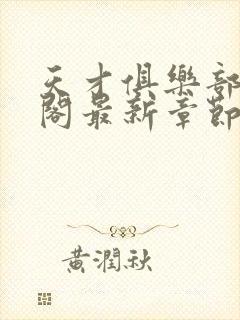 天才俱樂部
閣最新章節
黃潤秋